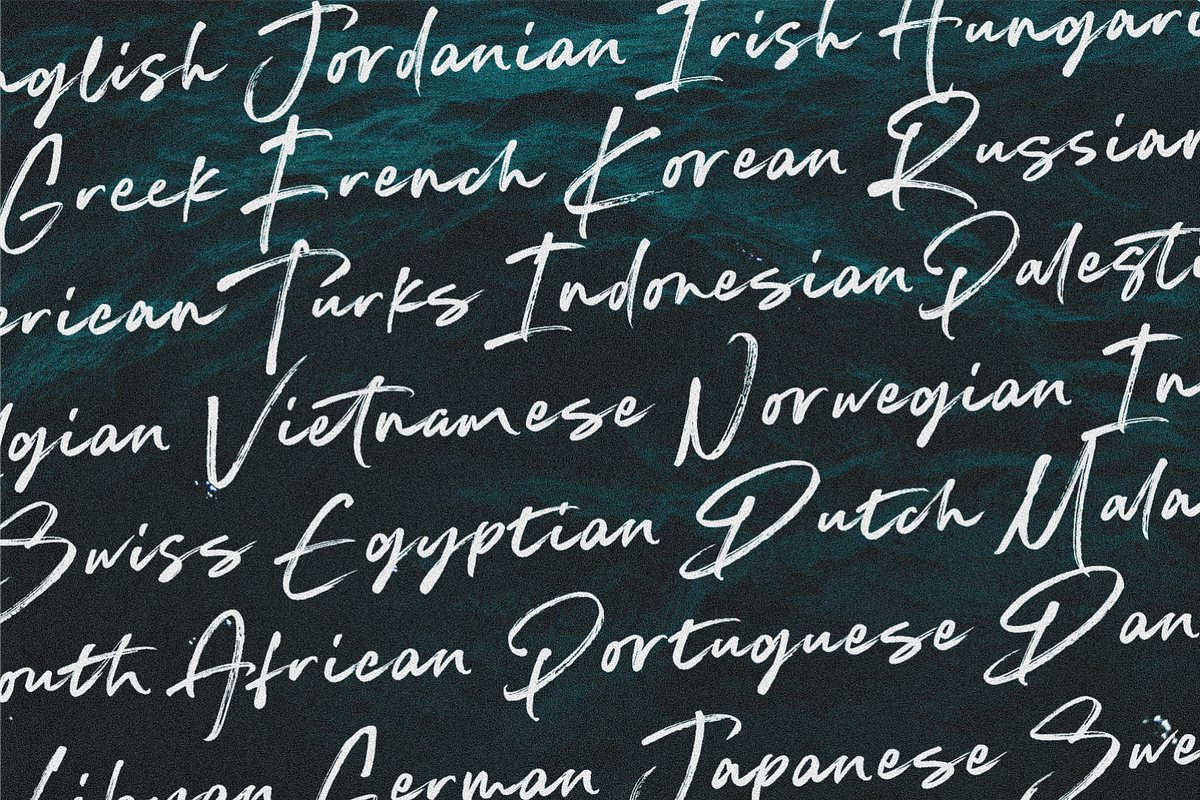 nglish Jordanian Irish Hungar
Greek French Korean Russian
erican Turks Indonesian Palest
lgian Vietnamese Norwegian In
Swiss Egyptian Dutch Mala
outh African Portuguese Dan
Libyan German Japanese Swe